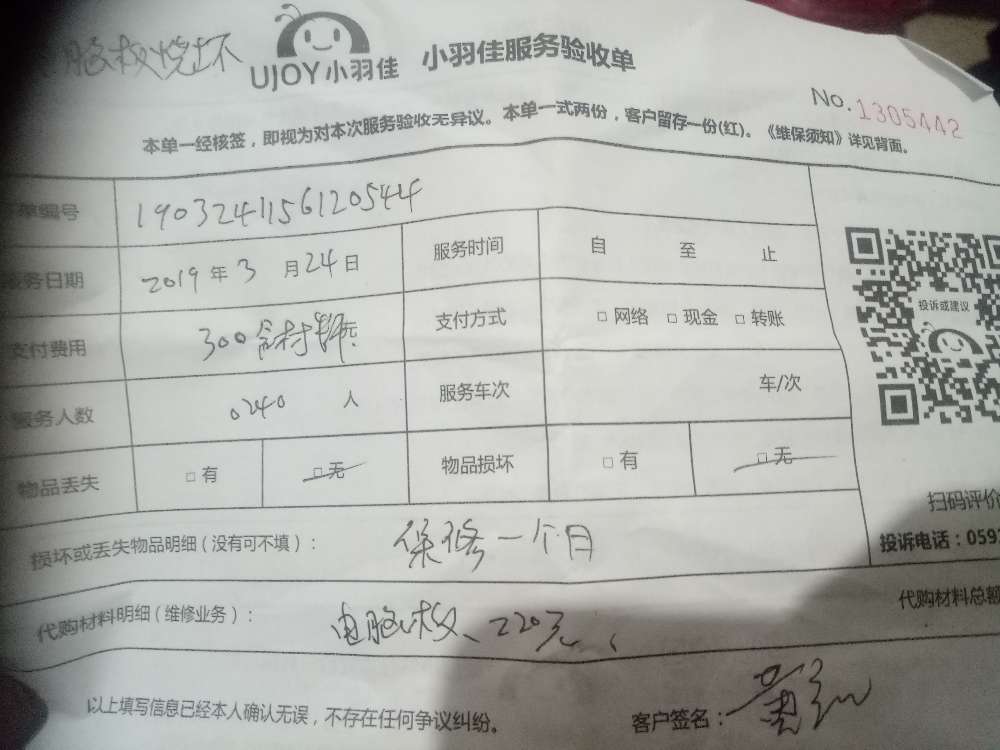 脑板烧坏
UJOY小羽佳 小羽佳服务验收单
No.1305442
本单一经核签，即视为对本次服务验收无异议。本单一式两份，客户留存一份(红)。《维保须知》详见背面。
单编号 1903241156120544
服务日期 2019年3月24日 服务时间 自 至 止
支付费用 300含材料元 支付方式 □网络 □现金 □转账
服务人数 0240 人 服务车次 车/次
物品丢失 □有 □无 物品损坏 □有 □无
投诉或建议
扫码评价
投诉电话：059
损坏或丢失物品明细（没有可不填）： 保修一个月
代购材料明细（维修业务）： 电脑板、220元、 代购材料总额
以上填写信息已经本人确认无误，不存在任何争议纠纷。 客户签名：